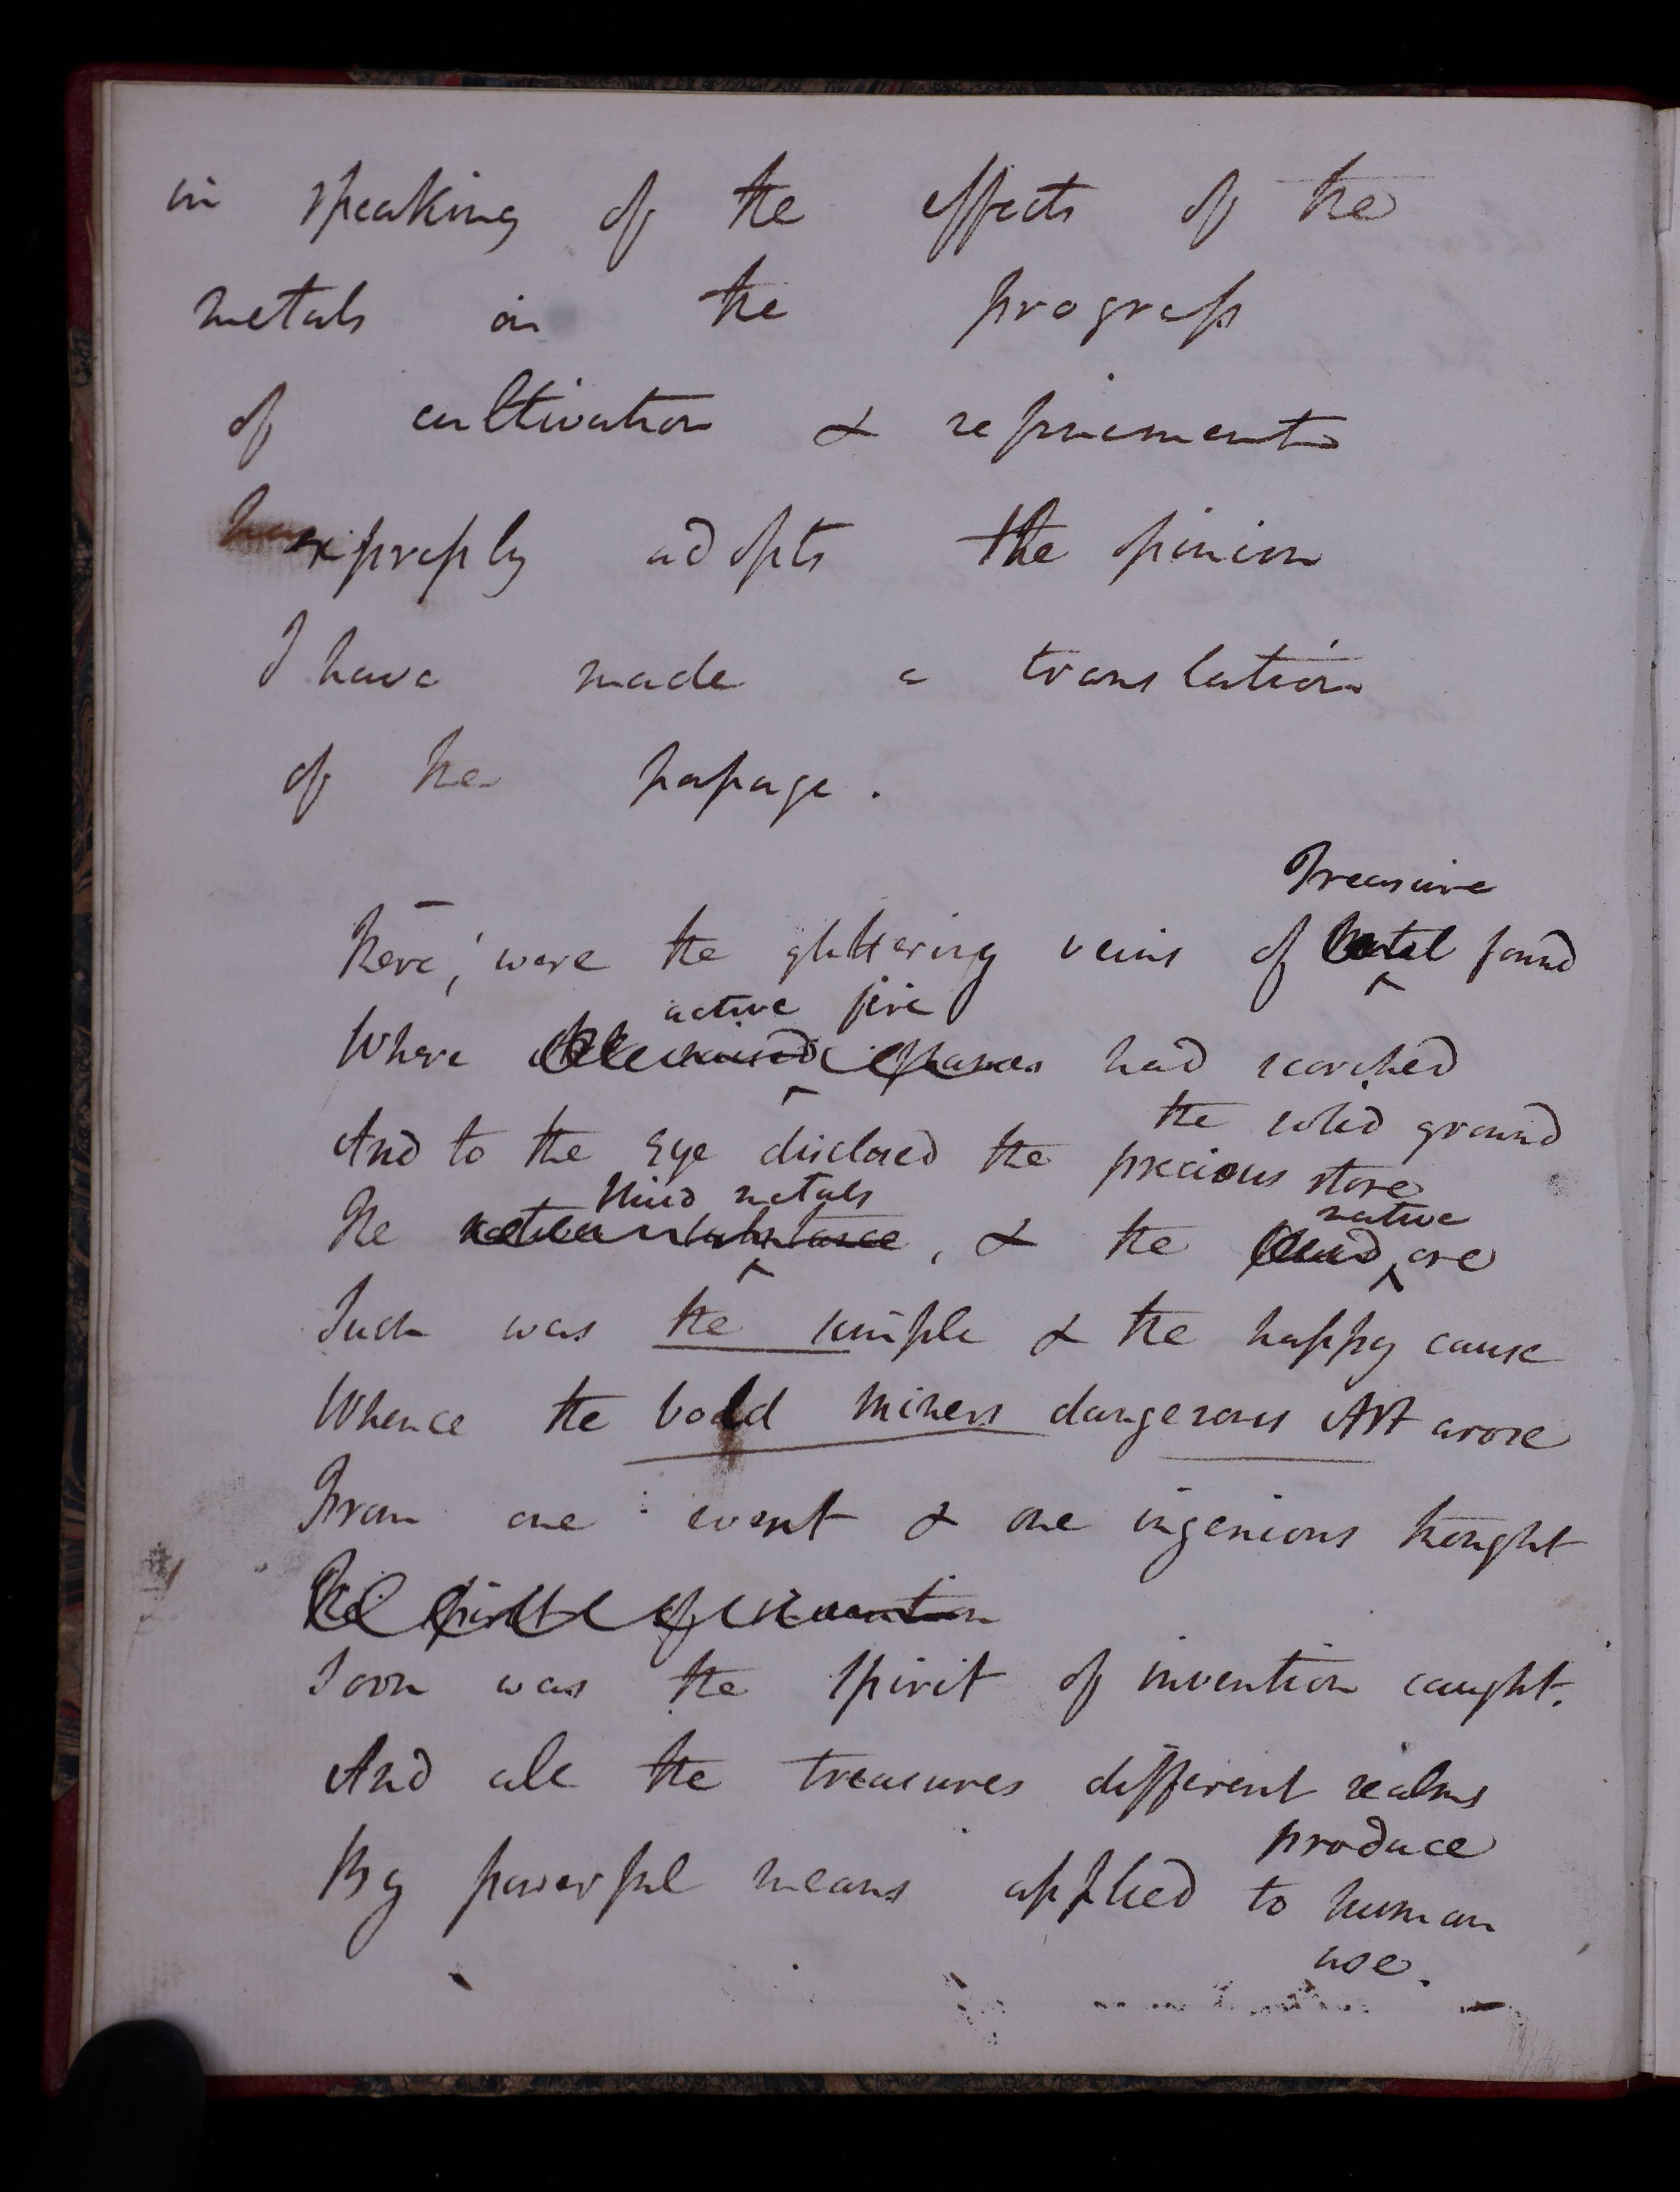 in speaking of the effects of the
metals on the progress
of cultivation & refinement
expressly adopts the opinion
I have made a translation
of the passage.
Treasure
There, were the glittering veins of metal found
active fire
Where had scorched
the solid ground
And to the Eye disclosed the precious store
fluid metals
native
The substance, & the fluid ore
Such was the simple & the happy cause
Whence the bold miners dangerous Art arose
From one event & one ingenious thought
The spirit of invention
Soon was the spirit of invention caught.
And all the treasures different realms
produce
By powerful means applied to human
use.